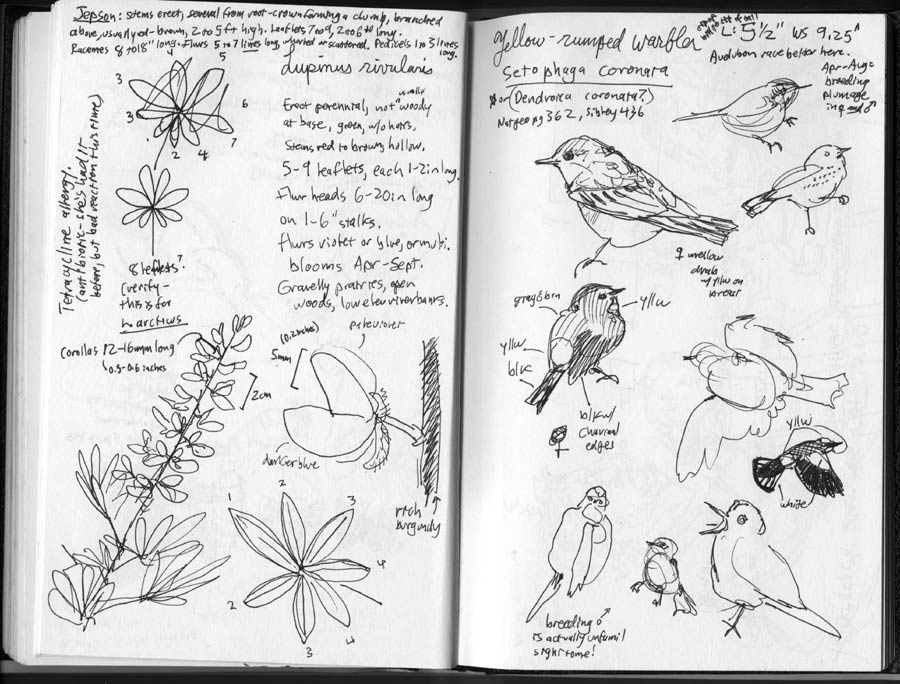 Jepson: stems erect, several from root-crown forming a clump, branched
above, usually red-brown, 2 to 5 ft high. Leaflets 7 to 9, 2 to 6" long.
Racemes 8 to 18" long. Flwrs 5 to 7 lines long, or scattered. Pedicels 1 to 3 lines
long.
Lupinus rivularis
Erect perennial, not usually woody
at base, green, w/o hairs.
Stems red to brown, hollow.
5-9 leaflets, each 1-2in long.
Flwr heads 6-20in long
on 1-6" stalks.
flwrs violet or blue, or multi.
blooms Apr-Sept.
Gravelly prairies, open
woods, low elev riverbanks.
3
5
3
6
2
4
7
Tetracycline allergy.
(antibiotic - she's had it
before, but bad reaction this time)
8 leaflets?
(verify -
this is for
L. arcticus
Corollas 12-16mm long
0.5-0.6 inches
2cm
(0.2 inches)
5mm
darker blue
rich
burgundy
1
2
3
4
2
3
4
Yellow-rumped warbler
L: 5½" WS 9.25"
Setophaga coronata
Audubon race better here.
or (Dendroica coronata?)
Nat Geo pg 362, Sibley 436
Apr-Aug=
breeding
plumage
in ♀ and ♂
♀ mellow
drab
w/ yllw on
breast
gray & brn
yllw
yllw
blk
blk w/
charcoal
edges
♀
yllw
white
breeding ♂
is actually unfamil
sight to me!